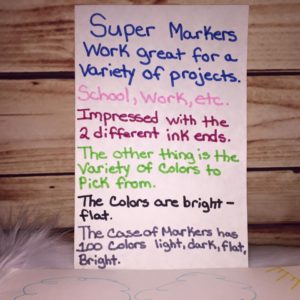 Super Markers
Work great for a
Variety of projects.
School, Work, etc.
Impressed with the
2 different ink ends.
The other thing is the
Variety of Colors to
Pick from.
The Colors are bright -
flat.
The Case of Markers has
100 Colors light, dark, flat,
Bright.